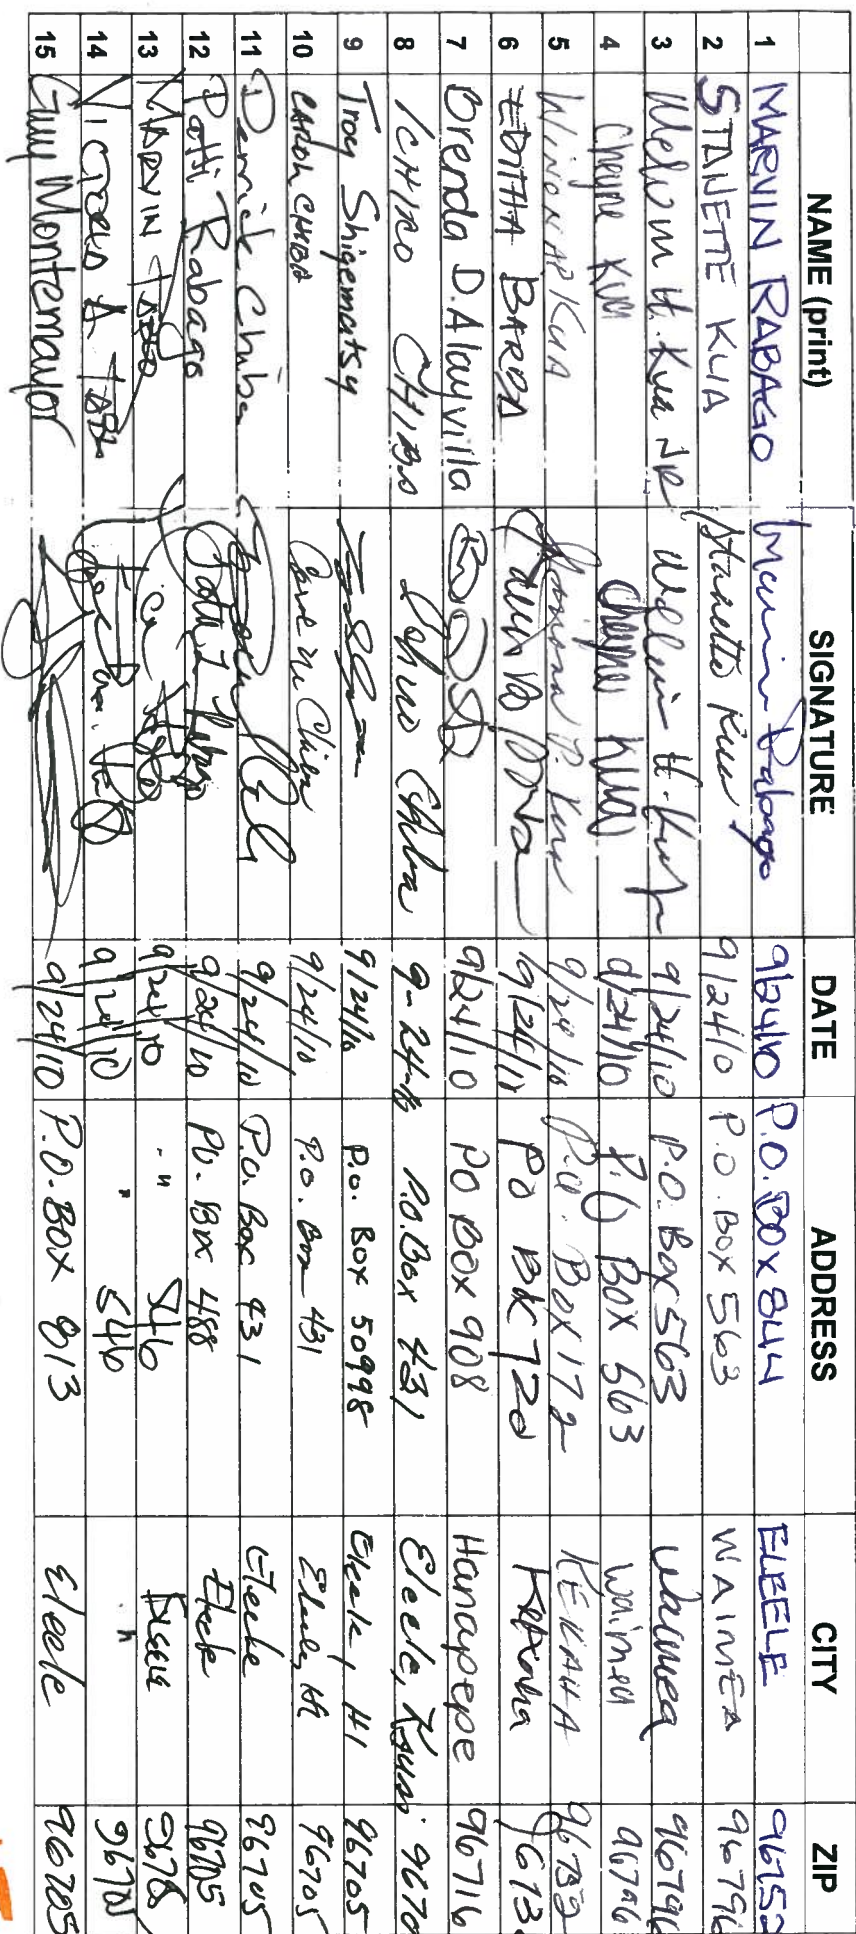 NAME (print) SIGNATURE DATE ADDRESS CITY ZIP
1 MARVIN RABAGO Marvin Rabago 9/24/10 P.O. BOX 844 ELEELE 96752
2 STANETTE KUA Stanette Kua 9/24/10 P.O. BOX 563 WAIMEA 96796
3 Melvin H. Kua JR Melvin H. Kua Jr 9/24/10 P.O. Box 563 Waimea 96796
4 Cheyne KUA Cheyne Kua 9/24/10 P.O BOX 563 Waimea 96796
5 WINONA P KUA Winona P. Kua 9/24/10 P.O. BOX 172 KEKAHA 96752
6 EDITHA BARBA 9/24/10 PO BX 720 Kekaha
7 Brenda D. Alayvilla 9/24/10 PO BOX 908 Hanapepe 96716
8 ICHIRO CHIBA Ichiro Chiba 9-24-10 P.O. Box 431 Eleele, Kauai 9670
9 Troy Shigematsy 9/24/10 P.O. BOX 50998 Eleele, HI 96705
10 CAROL CHIBA 9/24/10 P.O. Box 431 Eleele, HI 96705
11 Derrick Chiba 9/24/10 P.O. Box 431 Eleele 96705
12 Patti Rabago Patti Rabago 9/24/10 PO. Box 488 Eleele 96705
13 MARVIN 9/24/10 - " 546 Eleele 96705
14 A 9/24/10 " 546 " 96705
15 Guy Montemayor 9/24/10 P.O. BOX 813 Eleele 96705